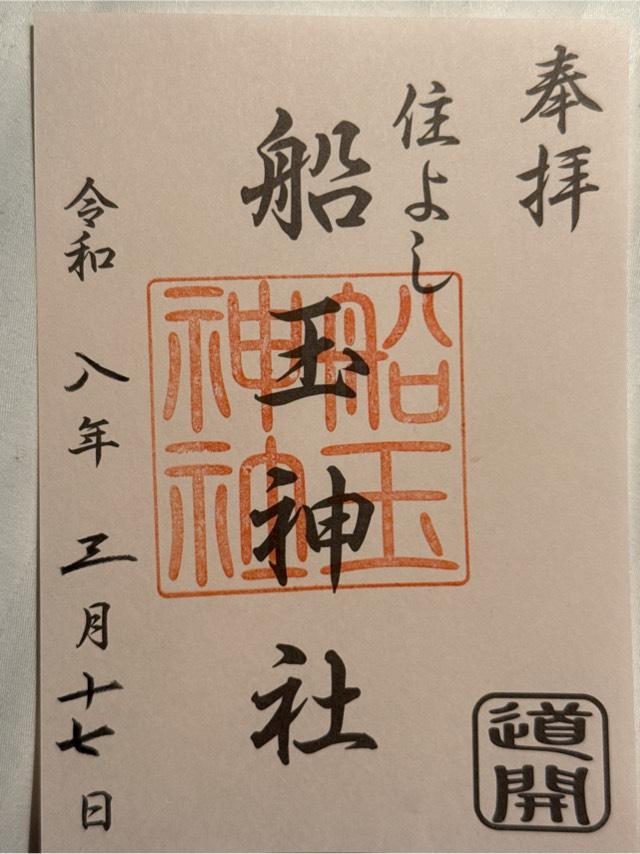 奉拝
住よし
船玉神社
船玉
神社
令和 八年 三月十七日
道開